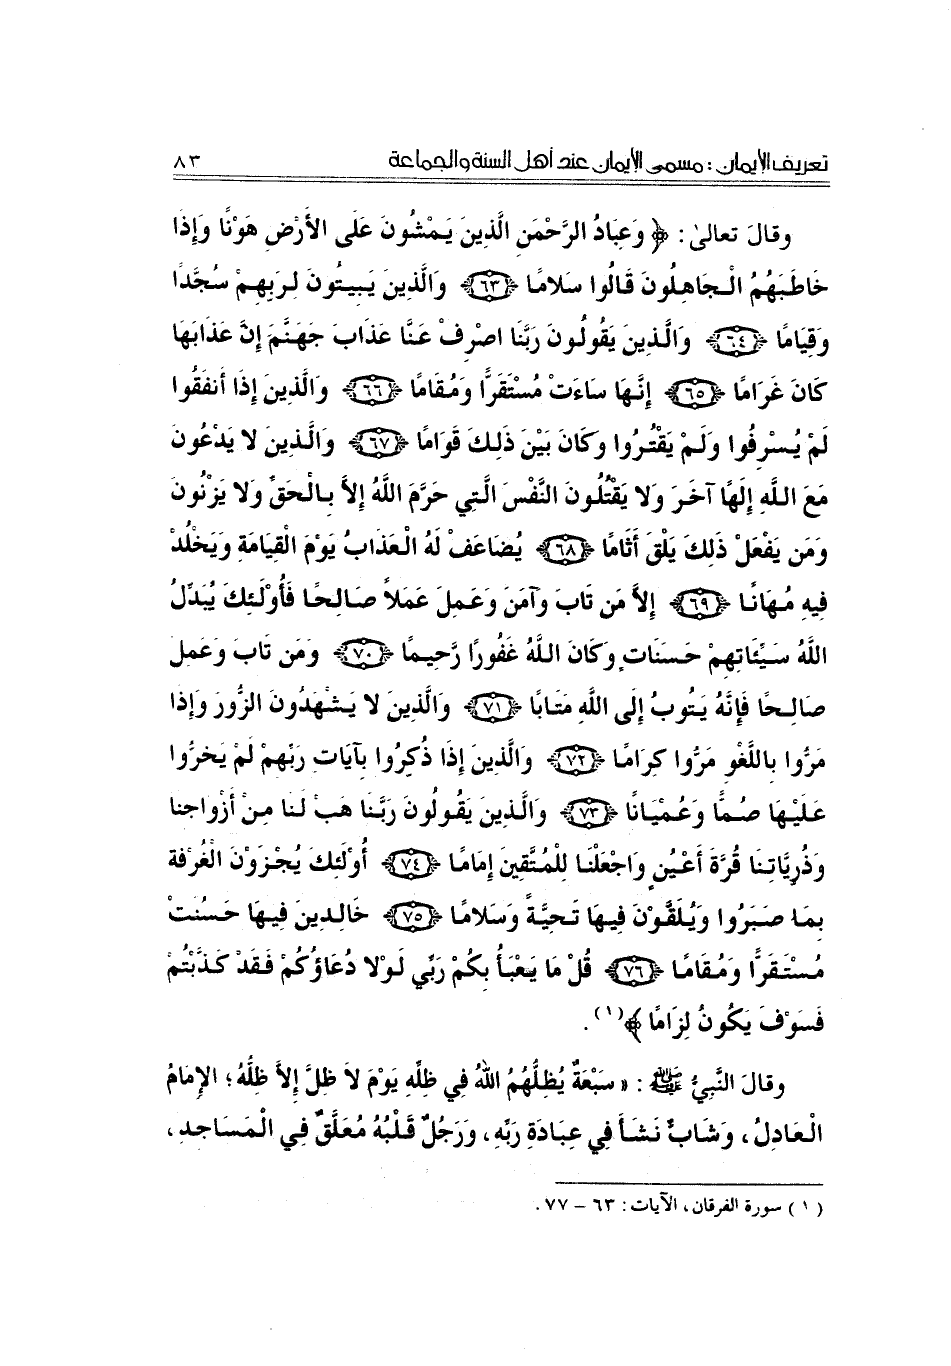 تعريف الإيمان : مسمى الإيمان عند أهل السنة والجماعة ٨٣
وقالَ تعالىٰ : ﴿ وَعِبَادُ الرَّحْمَنِ الَّذِينَ يَمْشُونَ عَلَى الأَرْضِ هَوْنًا وَإِذَا
خَاطَبَهُمُ الْجَاهِلُونَ قَالُوا سَلامًا ﴿٦٣﴾ وَالَّذِينَ يَبِيتُونَ لِرَبِهِمْ سُجَّدًا
وَقِيَامًا ﴿٦٤﴾ وَالَّذِينَ يَقُولُونَ رَبَّنَا اصْرِفْ عَنَّا عَذَابَ جَهَنَّمَ إِنَّ عَذَابَهَا
كَانَ غَرَامًا ﴿٦٥﴾ إِنَّهَا سَاءَتْ مُسْتَقَرًّا وَمُقَامًا ﴿٦٦﴾ وَالَّذِينَ إِذَا أَنفَقُوا
لَمْ يُسْرِفُوا وَلَمْ يَقْتُرُوا وَكَانَ بَيْنَ ذَلِكَ قَوَامًا ﴿٦٧﴾ وَالَّذِينَ لا يَدْعُونَ
مَعَ اللَّهِ إِلَهًا آخَرَ وَلا يَقْتُلُونَ النَّفْسَ الَّتِي حَرَّمَ اللَّهُ إِلاَّ بِالْحَقِّ وَلا يَزْنُونَ
وَمَن يَفْعَلْ ذَلِكَ يَلْقَ أَثَامًا ﴿٦٨﴾ يُضَاعَفْ لَهُ الْعَذَابُ يَوْمَ الْقِيَامَةِ وَيَخْلُدْ
فِيهِ مُهَانًا ﴿٦٩﴾ إِلاَّ مَن تَابَ وَآمَنَ وَعَمِلَ عَمَلاً صَالِحًا فَأُوْلَئِكَ يُبَدِّلُ
اللَّهُ سَيِّئَاتِهِمْ حَسَنَاتٍ وَكَانَ اللَّهُ غَفُورًا رَّحِيمًا ﴿٧٠﴾ وَمَن تَابَ وَعَمِلَ
صَالِحًا فَإِنَّهُ يَتُوبُ إِلَى اللَّهِ مَتَابًا ﴿٧١﴾ وَالَّذِينَ لا يَشْهَدُونَ الزُّورَ وَإِذَا
مَرُّوا بِاللَّغْوِ مَرُّوا كِرَامًا ﴿٧٢﴾ وَالَّذِينَ إِذَا ذُكِّرُوا بِآيَاتِ رَبِّهِمْ لَمْ يَخِرُّوا
عَلَيْهَا صُمًّا وَعُمْيَانًا ﴿٧٣﴾ وَالَّذِينَ يَقُولُونَ رَبَّنَا هَبْ لَنَا مِنْ أَزْوَاجِنَا
وَذُرِّيَّاتِنَا قُرَّةَ أَعْيُنٍ وَاجْعَلْنَا لِلْمُتَّقِينَ إِمَامًا ﴿٧٤﴾ أُوْلَئِكَ يُجْزَوْنَ الْغُرْفَةَ
بِمَا صَبَرُوا وَيُلَقَّوْنَ فِيهَا تَحِيَّةً وَسَلامًا ﴿٧٥﴾ خَالِدِينَ فِيهَا حَسُنَتْ
مُسْتَقَرًّا وَمُقَامًا ﴿٧٦﴾ قُلْ مَا يَعْبَأُ بِكُمْ رَبِّي لَوْلا دُعَاؤُكُمْ فَقَدْ كَذَّبْتُمْ
فَسَوْفَ يَكُونُ لِزَامًا ﴾(١) .
وقالَ النَّبِيُّ ﷺ : « سَبْعَةٌ يُظِلُّهُمُ اللهُ فِي ظِلِّهِ يَوْمَ لاَ ظِلَّ إِلاَّ ظِلُّهُ ؛ الإِمَامُ
الْعَادِلُ ، وَشَابٌّ نَشَأَ فِي عِبَادَةِ رَبِّهِ ، وَرَجُلٌ قَلْبُهُ مُعَلَّقٌ فِي الْمَسَاجِدِ ،
( ١ ) سورة الفرقان ، الآيات : ٦٣ – ٧٧ .